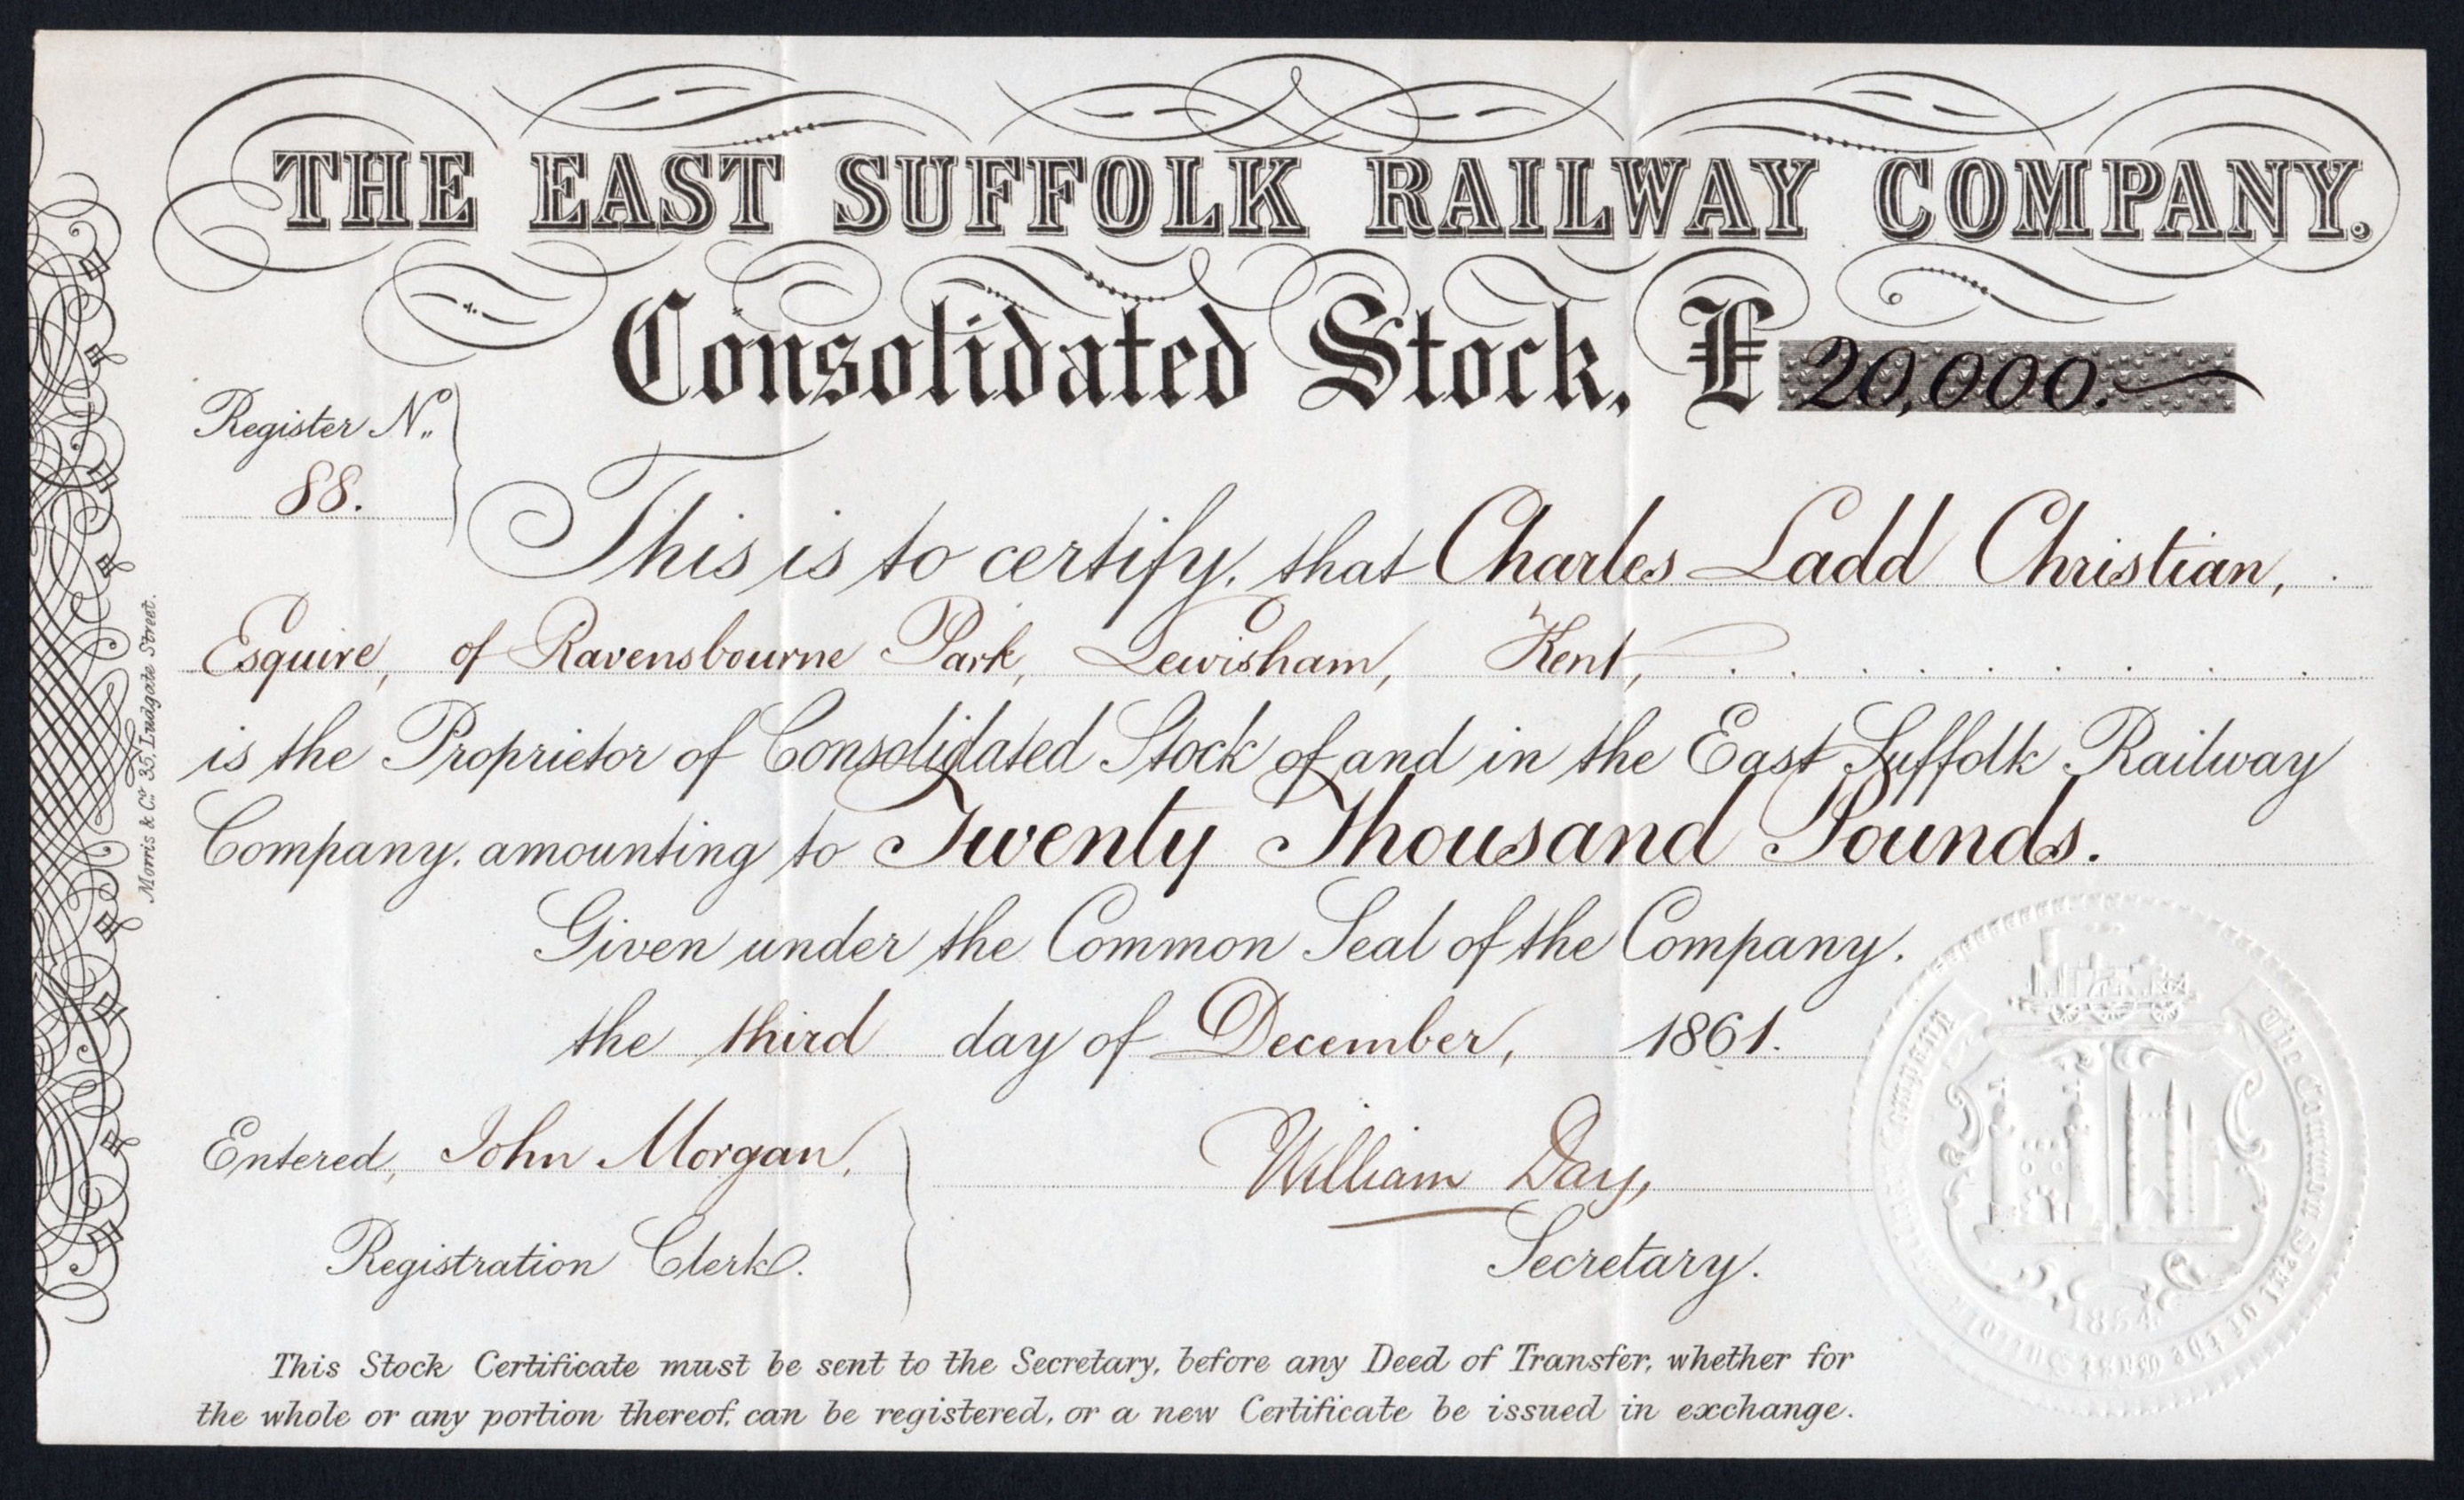 THE EAST SUFFOLK RAILWAY COMPANY.
Consolidated Stock, £ 20,000.
Register No.
88.
This is to certify, that Charles Ladd Christian,
Esquire, of Ravensbourne Park, Lewisham, Kent,
is the Proprietor of Consolidated Stock of and in the East Suffolk Railway
Company, amounting to Twenty Thousand Pounds.
Given under the Common Seal of the Company.
the third day of December, 1861.
Entered, John Morgan,
Registration Clerk.
William Day,
Secretary.
This Stock Certificate must be sent to the Secretary, before any Deed of Transfer, whether for
the whole or any portion thereof, can be registered, or a new Certificate be issued in exchange.
Morris & Co. 35, Ludgate Street.
The Common Seal of the East Suffolk Railway Company
1854